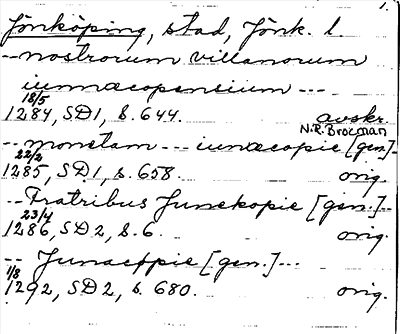 1.
Jönköping, stad, Jönk. l.
-- nostrorum villanorum
iunacopensium ---
18/5
1284, SD1, s. 644. avskr.
N.R. Brocman
-- monetam --- iunacopie [gen.] --
22/2
1285, SD1, s. 658. orig.
-- Fratribus Junekopie [gen.] --
23/4
1286, SD2, s. 6. orig.
-- Junacopie [gen.] ---
1/8
1292, SD2, s. 680. orig.